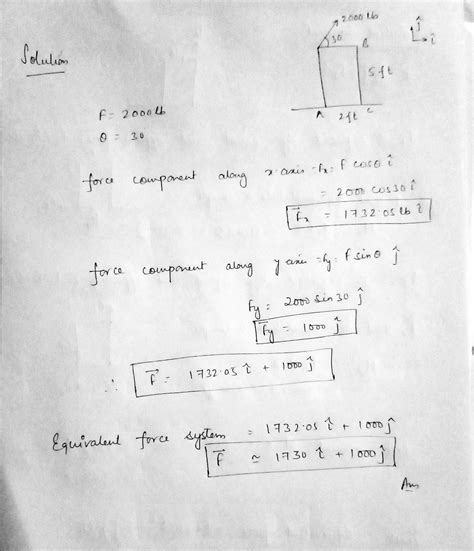 2000 lb
30 B
ĵ
î
Solution
5 ft
A 2ft C
F = 2000 lb
θ = 30
force component along x axis = Fx = F cosθ î
= 2000 cos30 î
F⃗x = 1732.05 lb î
force component along y axis = Fy = F sinθ ĵ
Fy = 2000 sin 30 ĵ
F⃗y = 1000 ĵ
∴ F⃗ = 1732.05 î + 1000 ĵ
Equivalent force system = 1732.05 î + 1000 ĵ
F⃗ ≃ 1730 î + 1000 ĵ
Ans